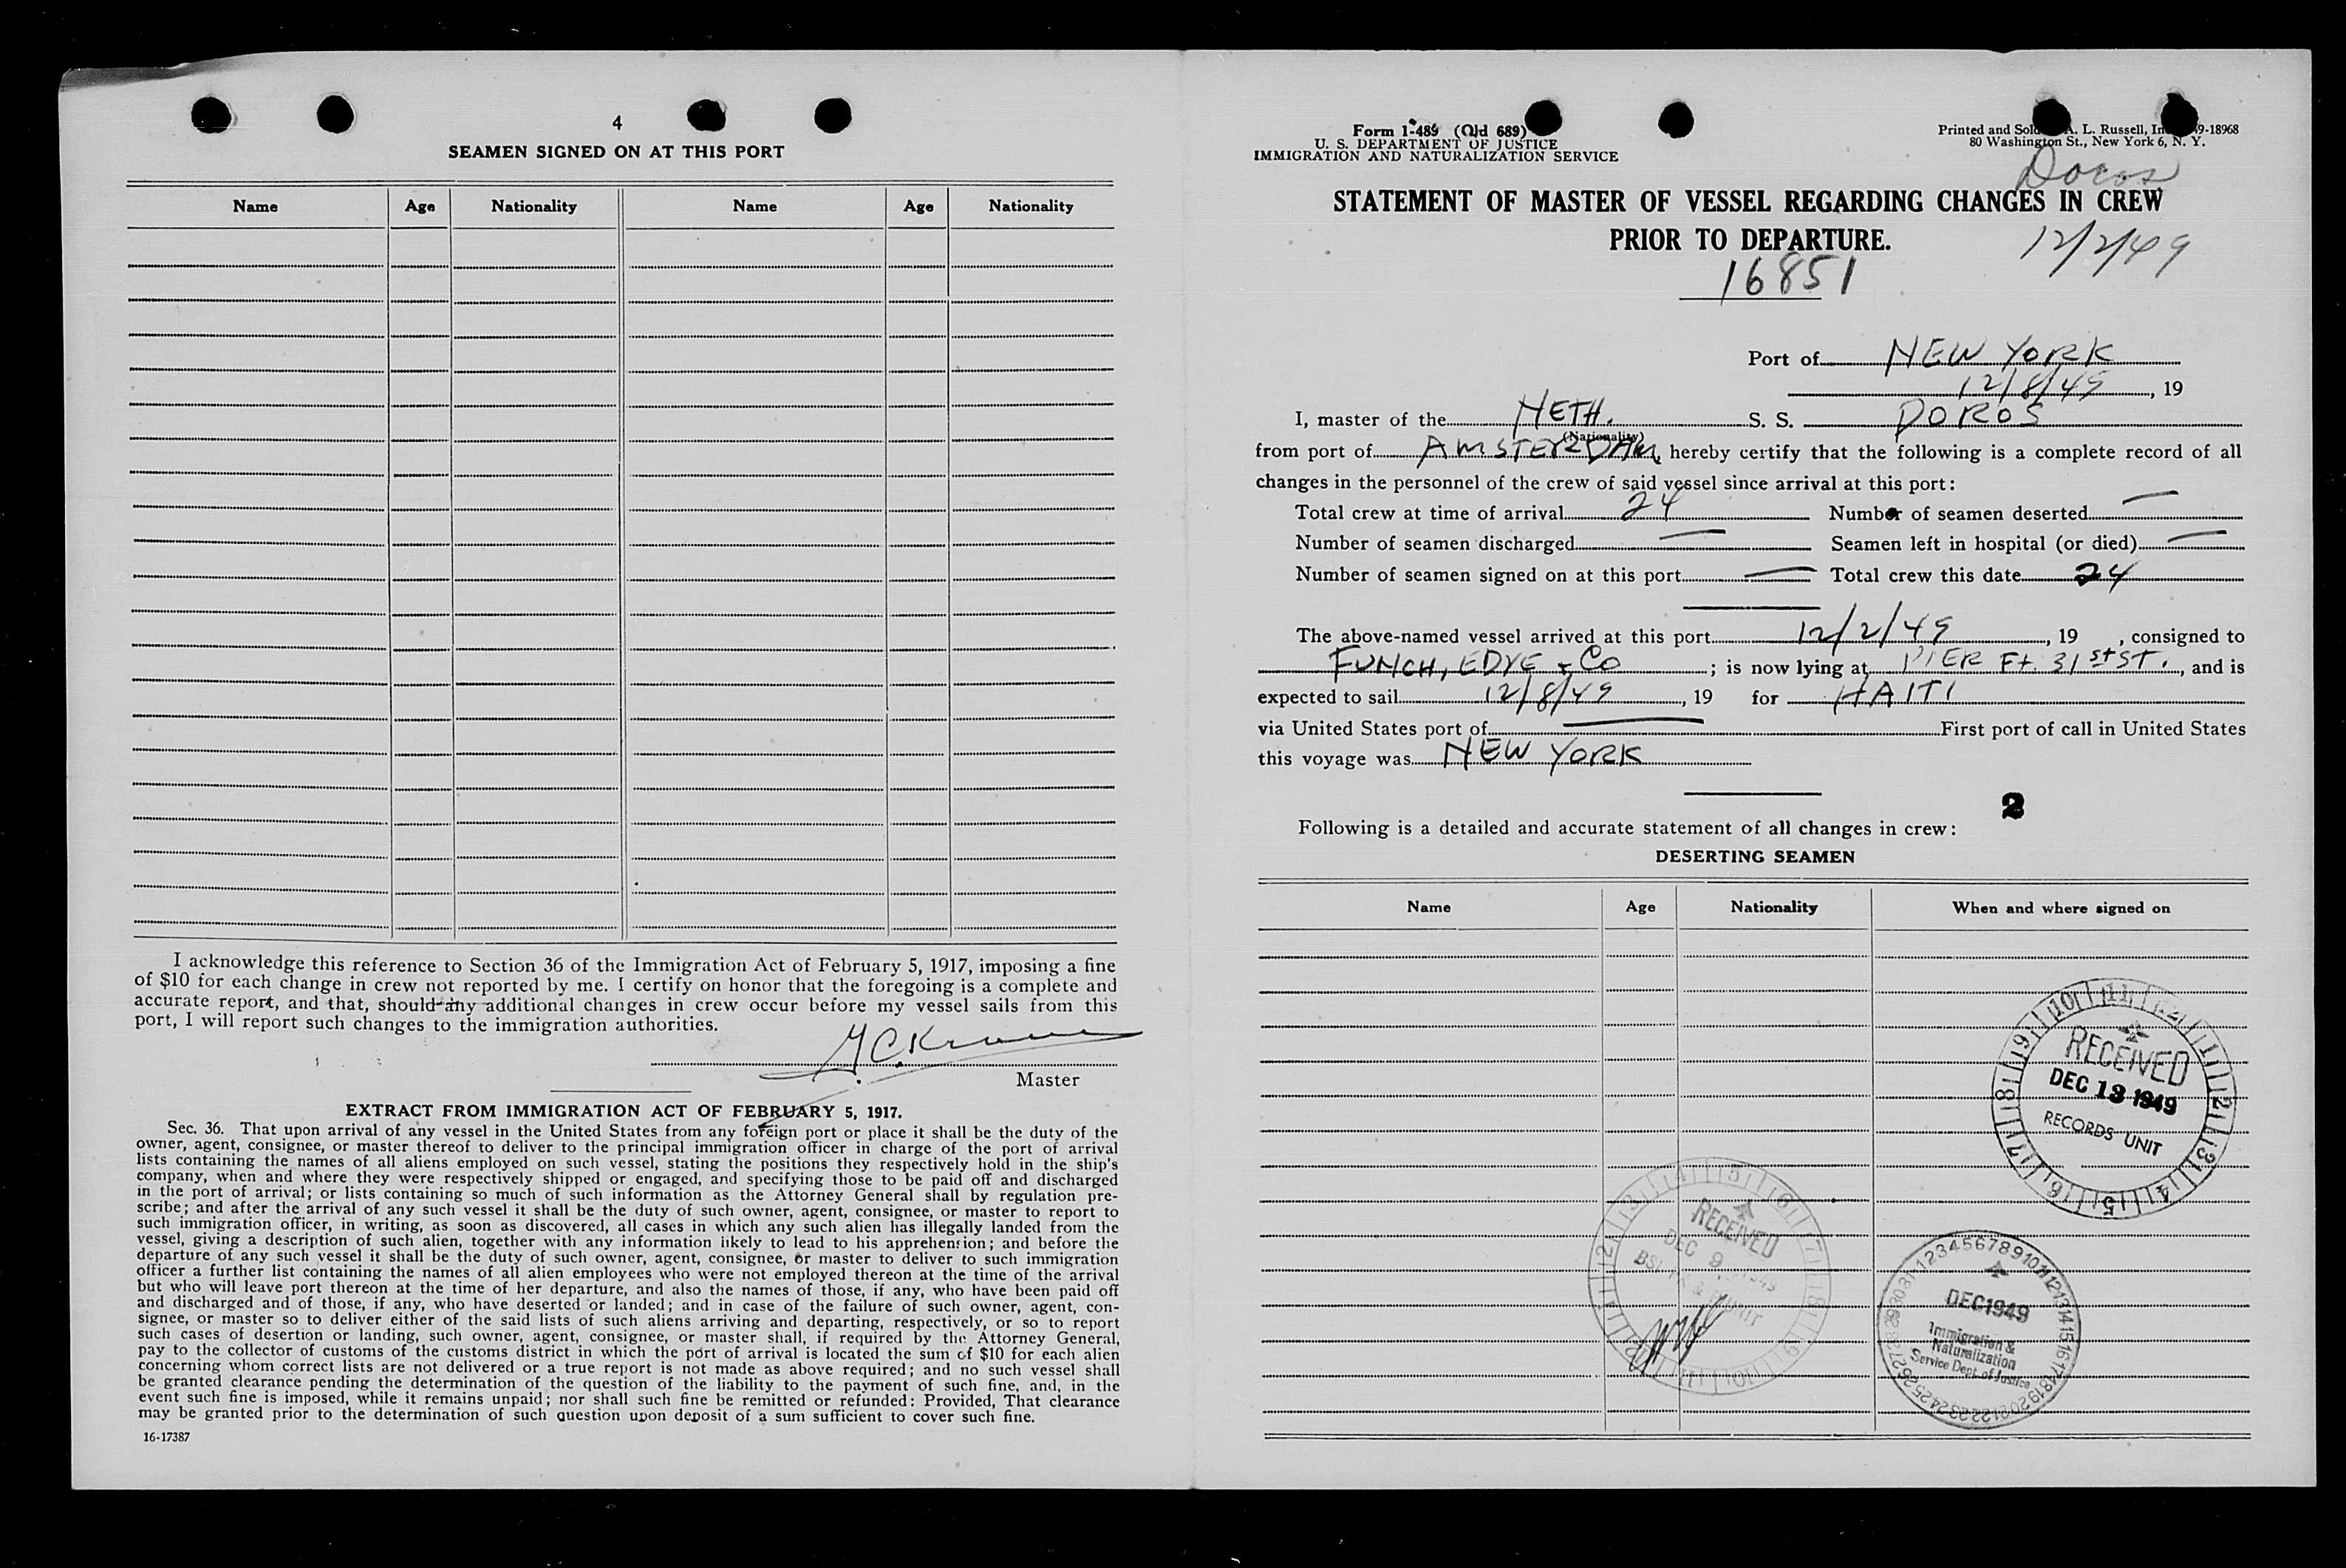 4
SEAMEN SIGNED ON AT THIS PORT
Name Age Nationality Name Age Nationality
I acknowledge this reference to Section 36 of the Immigration Act of February 5, 1917, imposing a fine
of $10 for each change in crew not reported by me. I certify on honor that the foregoing is a complete and
accurate report, and that, should any additional changes in crew occur before my vessel sails from this
port, I will report such changes to the immigration authorities.
Master
EXTRACT FROM IMMIGRATION ACT OF FEBRUARY 5, 1917.
Sec. 36. That upon arrival of any vessel in the United States from any foreign port or place it shall be the duty of the
owner, agent, consignee, or master thereof to deliver to the principal immigration officer in charge of the port of arrival
lists containing the names of all aliens employed on such vessel, stating the positions they respectively hold in the ship's
company, when and where they were respectively shipped or engaged, and specifying those to be paid off and discharged
in the port of arrival; or lists containing so much of such information as the Attorney General shall by regulation pre-
scribe; and after the arrival of any such vessel it shall be the duty of such owner, agent, consignee, or master to report to
such immigration officer, in writing, as soon as discovered, all cases in which any such alien has illegally landed from the
vessel, giving a description of such alien, together with any information likely to lead to his apprehension; and before the
departure of any such vessel it shall be the duty of such owner, agent, consignee, or master to deliver to such immigration
officer a further list containing the names of all alien employees who were not employed thereon at the time of the arrival
but who will leave port thereon at the time of her departure, and also the names of those, if any, who have been paid off
and discharged and of those, if any, who have deserted or landed; and in case of the failure of such owner, agent, con-
signee, or master so to deliver either of the said lists of such aliens arriving and departing, respectively, or so to report
such cases of desertion or landing, such owner, agent, consignee, or master shall, if required by the Attorney General,
pay to the collector of customs of the customs district in which the port of arrival is located the sum of $10 for each alien
concerning whom correct lists are not delivered or a true report is not made as above required; and no such vessel shall
be granted clearance pending the determination of the question of the liability to the payment of such fine, and, in the
event such fine is imposed, while it remains unpaid; nor shall such fine be remitted or refunded: Provided, That clearance
may be granted prior to the determination of such question upon deposit of a sum sufficient to cover such fine.
16-17387
Form 1-489 (Old 689)
U. S. DEPARTMENT OF JUSTICE
IMMIGRATION AND NATURALIZATION SERVICE
Printed and Sold A. L. Russell, 9-18968
80 Washington St., New York 6, N. Y.
Doros
STATEMENT OF MASTER OF VESSEL REGARDING CHANGES IN CREW
PRIOR TO DEPARTURE.
12/2/49
16851
Port of NEW YORK
12/8/49, 19
I, master of the NETH. S. S. DOROS
(Nationality)
from port of AMSTERDAM, hereby certify that the following is a complete record of all
changes in the personnel of the crew of said vessel since arrival at this port:
Total crew at time of arrival 24 Number of seamen deserted —
Number of seamen discharged — Seamen left in hospital (or died) —
Number of seamen signed on at this port — Total crew this date 24
The above-named vessel arrived at this port 12/2/49, 19 , consigned to
FUNCH, EDYE + Co ; is now lying at PIER Ft. 31st ST., and is
expected to sail 12/8/49, 19 for HAITI
via United States port of — First port of call in United States
this voyage was NEW YORK
2
Following is a detailed and accurate statement of all changes in crew:
DESERTING SEAMEN
Name Age Nationality When and where signed on
RECEIVED
DEC 13 1949
RECORDS UNIT
RECEIVED
DEC 9 1949
DEC 1949
Immigration &
Naturalization
Service Dept. of Justice